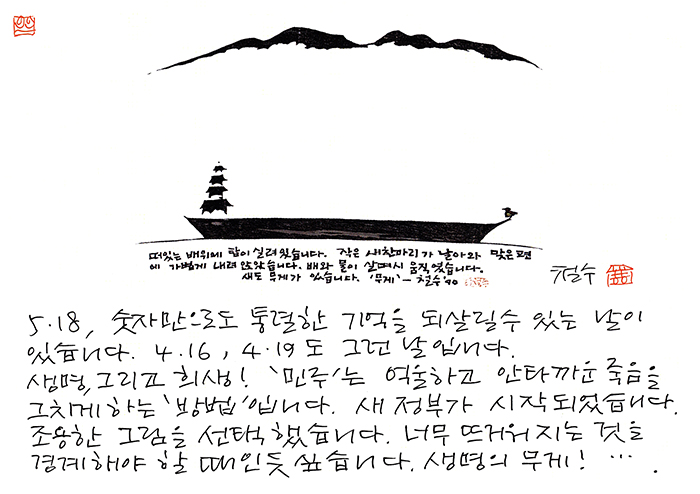 떠있는 배위에 탑이 실려있습니다. 작은 새한마리가 날아와 맞은편
에 가볍게 내려 앉았습니다. 배와 물이 살며시 움직였습니다.
새도 무게가 있습니다. '무게' - 철수 '90
철수
5·18, 숫자만으로도 통렬한 기억을 되살릴수 있는 날이
있습니다. 4·16, 4·19도 그런 날입니다.
생명, 그리고 희생! '민주'는 억울하고 안타까운 죽음을
그치게하는 '방법'입니다. 새 정부가 시작되었습니다.
조용한 그림을 선택했습니다. 너무 뜨거워지는 것을
경계해야 할 때인듯 싶습니다. 생명의 무게! ….